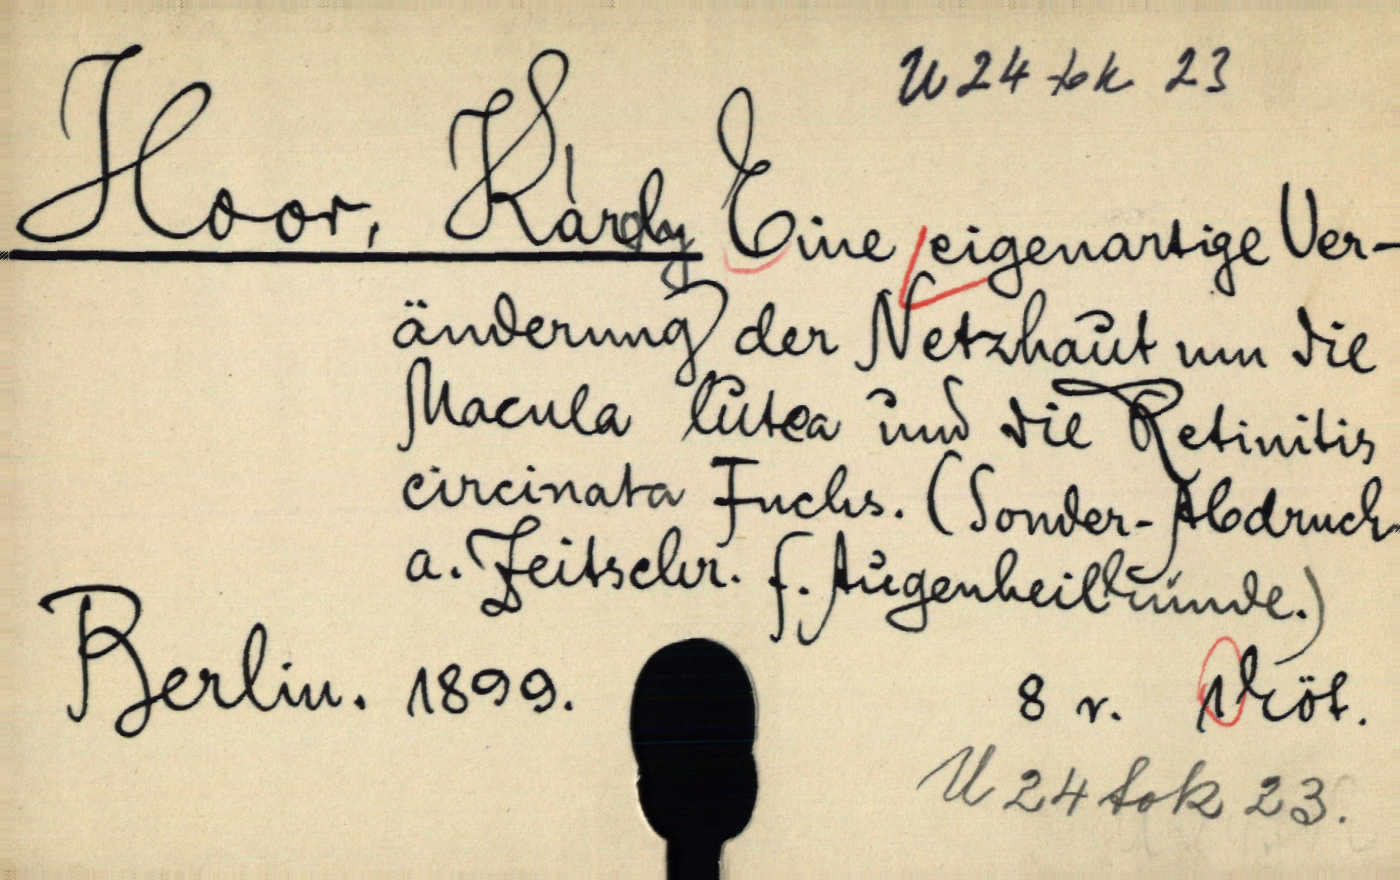 U 24 tok 23
Hoor, Károly Eine eigenartige Ver-
änderung der Netzhaut um die
Macula lutea und die Retinitis
circinata Fuchs. (Sonder-Abdruck
a. Zeitschr. f. Augenheilkunde.)
Berlin. 1899. 8 r. 1 köt.
U 24 tok 23.